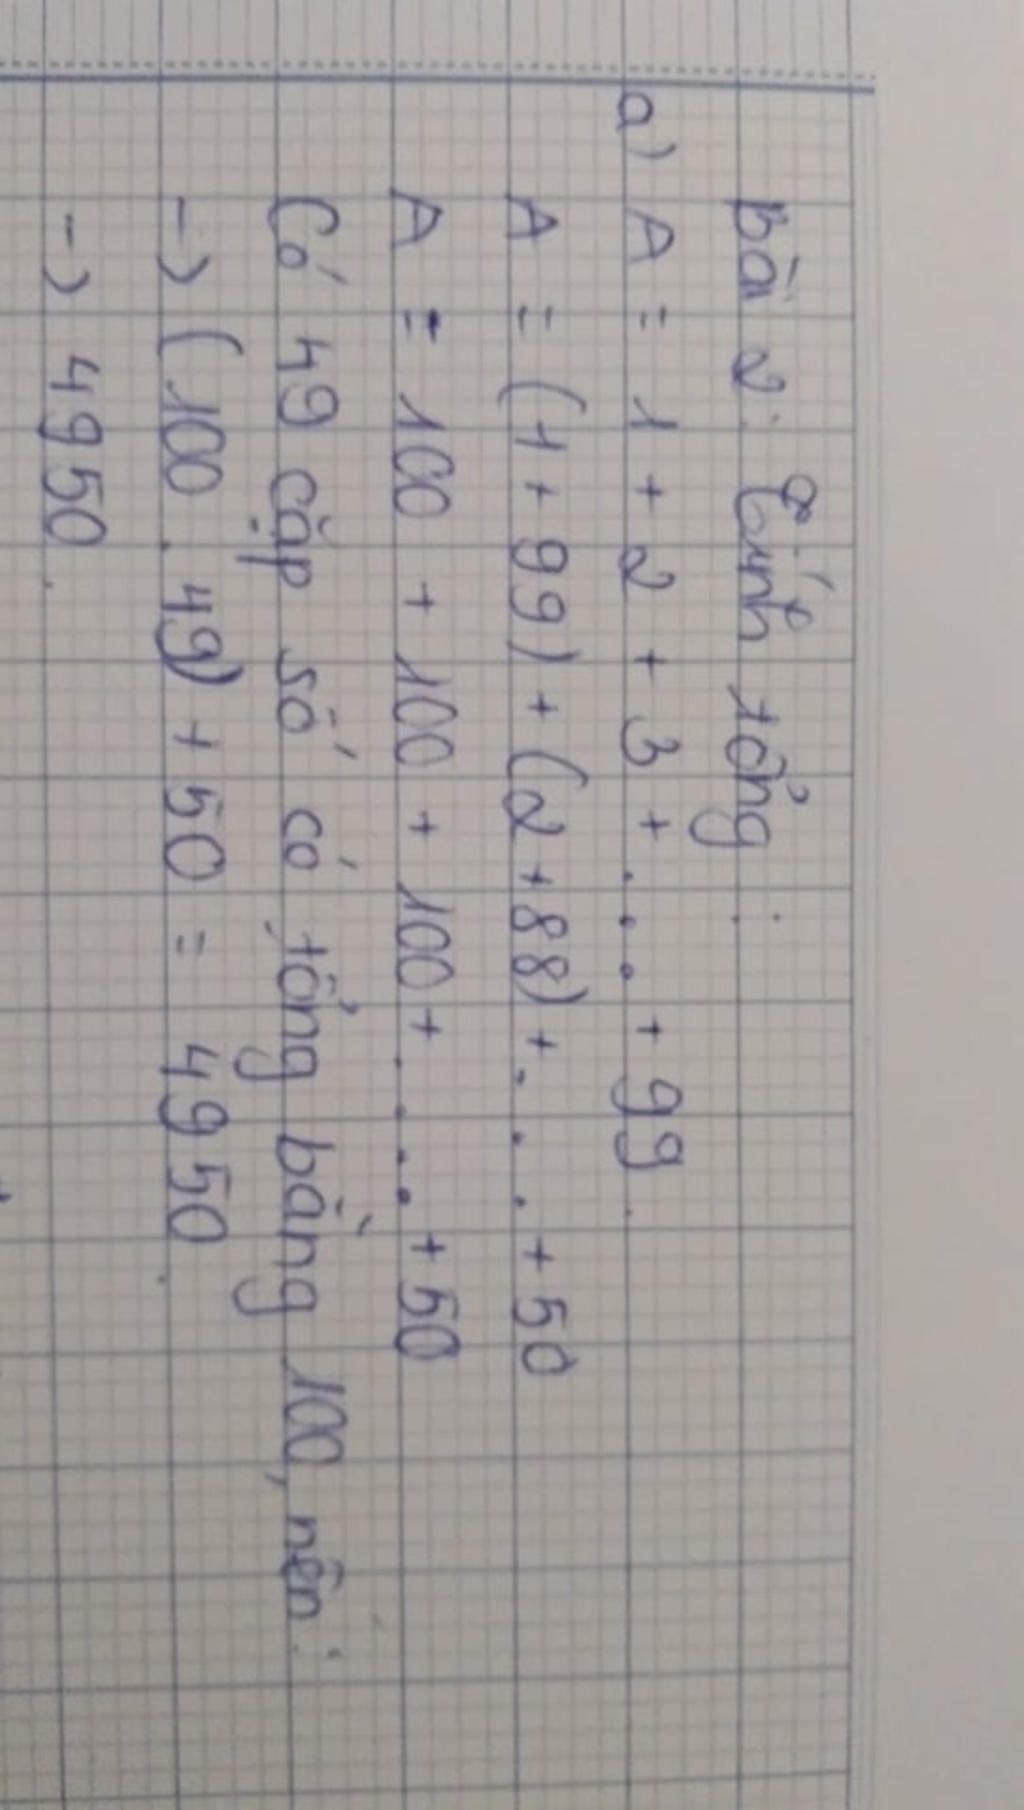 Bài 2: Tính tổng:
a) A = 1 + 2 + 3 + ... + 99.
A = (1 + 99) + (2 + 88) + .... + 50
A = 100 + 100 + 100 + .... + 50
Có 49 cặp số có tổng bằng 100, nên:
-> (100 . 49) + 50 = 4950.
-> 4950.